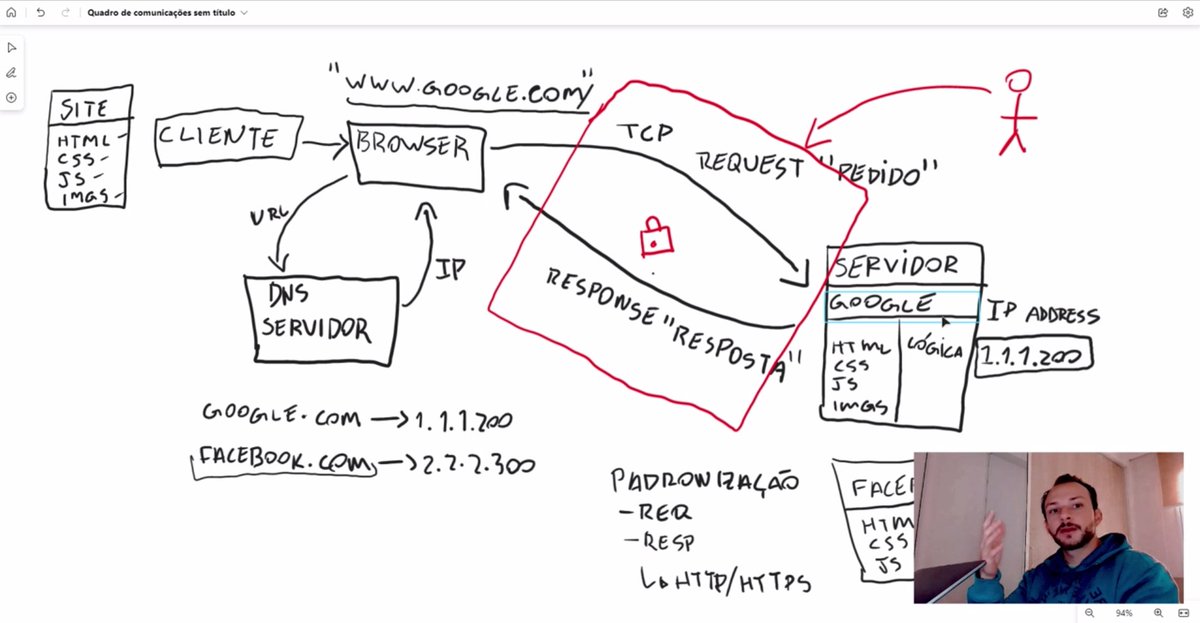 Quadro de comunicações sem título
"WWW.GOOGLE.COM"
SITE
HTML -
CSS -
JS -
IMGS -
CLIENTE
BROWSER
TCP
REQUEST "PEDIDO"
URL
IP
DNS
SERVIDOR
RESPONSE "RESPOSTA"
SERVIDOR
GOOGLE
HTML
CSS
JS
IMGS
LÓGICA
IP ADDRESS
1.1.1.200
GOOGLE.COM → 1.1.1.200
FACEBOOK.COM → 2.2.2.300
PADRONIZAÇÃO
- REQ
- RESP
↳ HTTP/HTTPS
HTM
CSS
JS
94%